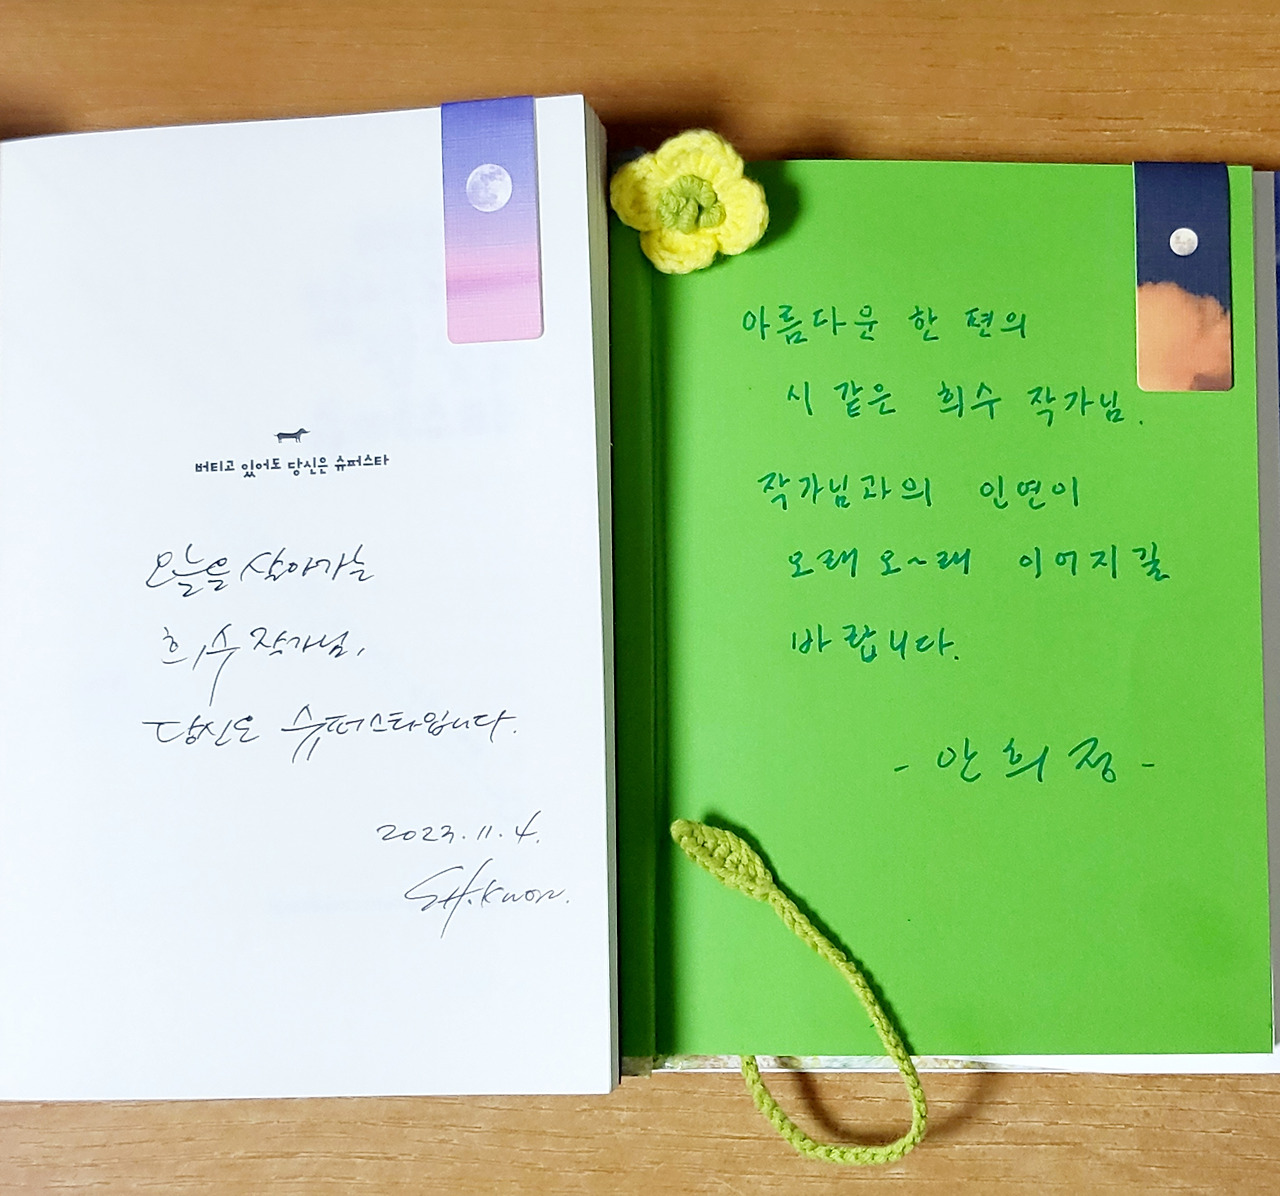 버티고 있어도 당신은 슈퍼스타
오늘을 살아가는
희수 작가님,
당신은 슈퍼스타입니다.
2023.11.4.
SH.Kwon.
아름다운 한 편의
시 같은 희수 작가님.
작가님과의 인연이
오래오~래 이어지길
바랍니다.
- 안희정 -